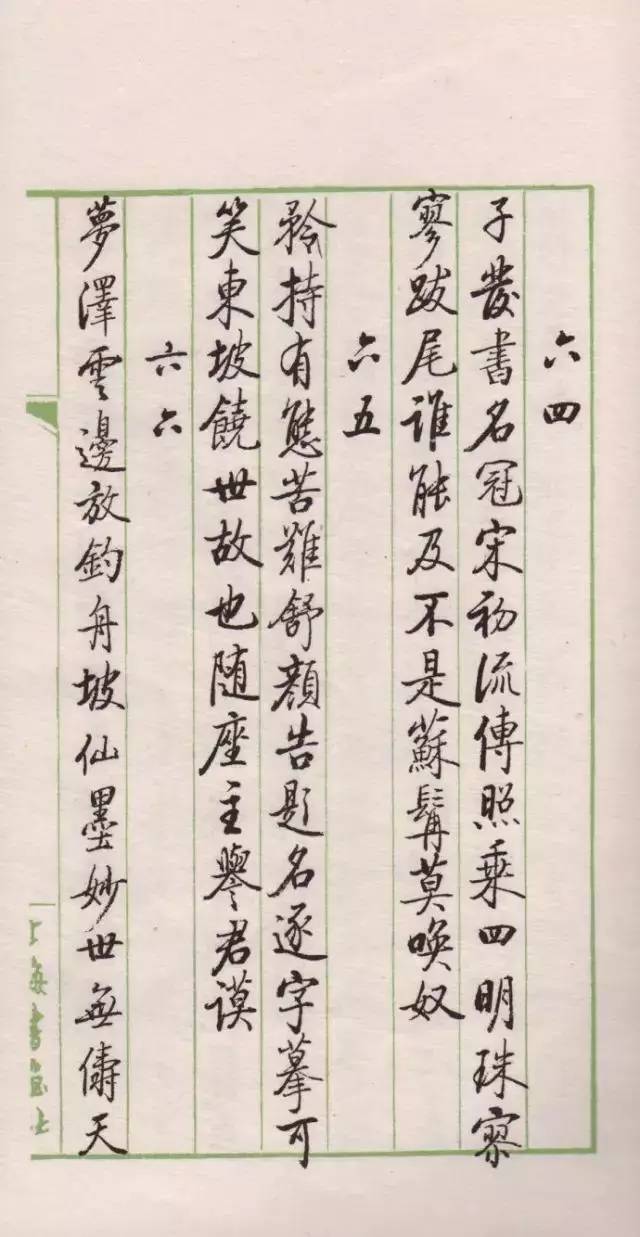 六四
子發書名冠宋初流傳照乘四明珠寥
寥跋尾谁能及不是蘇髯莫唤奴
六五
矜持有態苦難舒顔告題名逐字摹可
笑東坡饒世故也随座主譽君谟
六六
夢澤雲邊放釣舟坡仙墨妙世無儔天
上海書画社